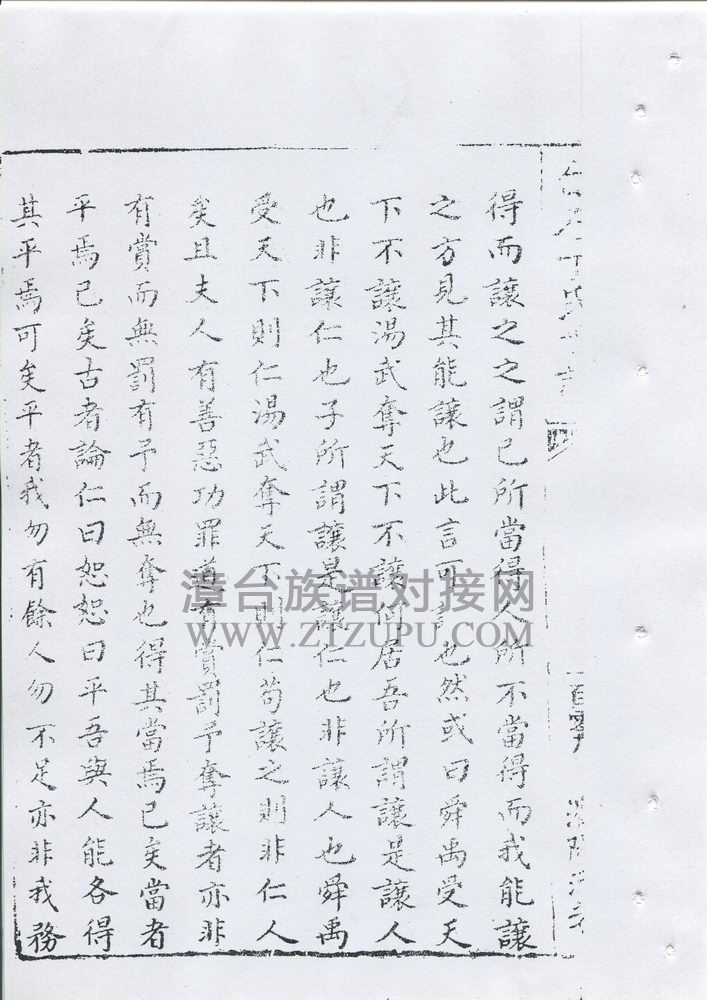 得而讓之之謂已所當得人所不當得而我能讓
之方見其能讓也此言可言也然或曰舜禹受天
下不讓湯武奪天下不讓何居吾所謂讓是讓人
也非讓仁也子所謂讓是讓仁也非讓人也舜禹
受天下則仁湯武奪天下則仁苟讓之則非仁人
矣且夫人有善惡功罪道有賞罰予奪讓者亦非
有賞而無罰有予而無奪也得其當焉已矣當者
平焉已矣古者論仁曰恕恕曰平吾與人能各得
其平焉可矣平者我勿有餘人勿不足亦非我務
一百零
漳台族谱对接网
WWW.ZTZUPU.COM